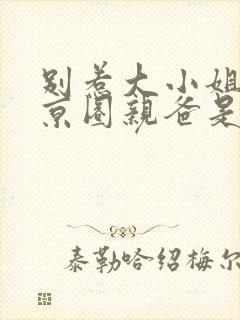 别惹大小姐
京圈亲爸是
泰勒哈绍梅尔